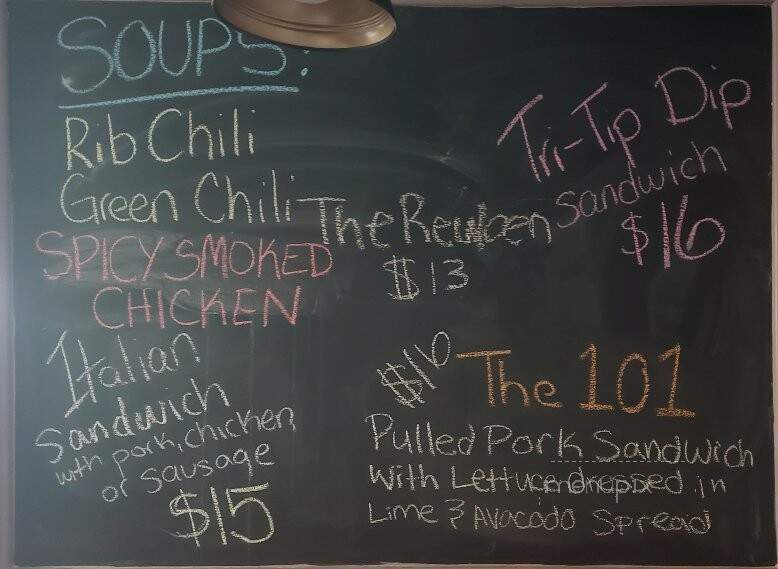 SOUPS:
Rib Chili
Green Chili
SPICY SMOKED
CHICKEN
Italian
Sandwich
with pork, chicken,
or sausage
$15
The Reuben
$13
Tri-Tip Dip
sandwich
$16
$16 The 101
Pulled Pork Sandwich
with Lettuce dressed in
Lime & Avacado Spread